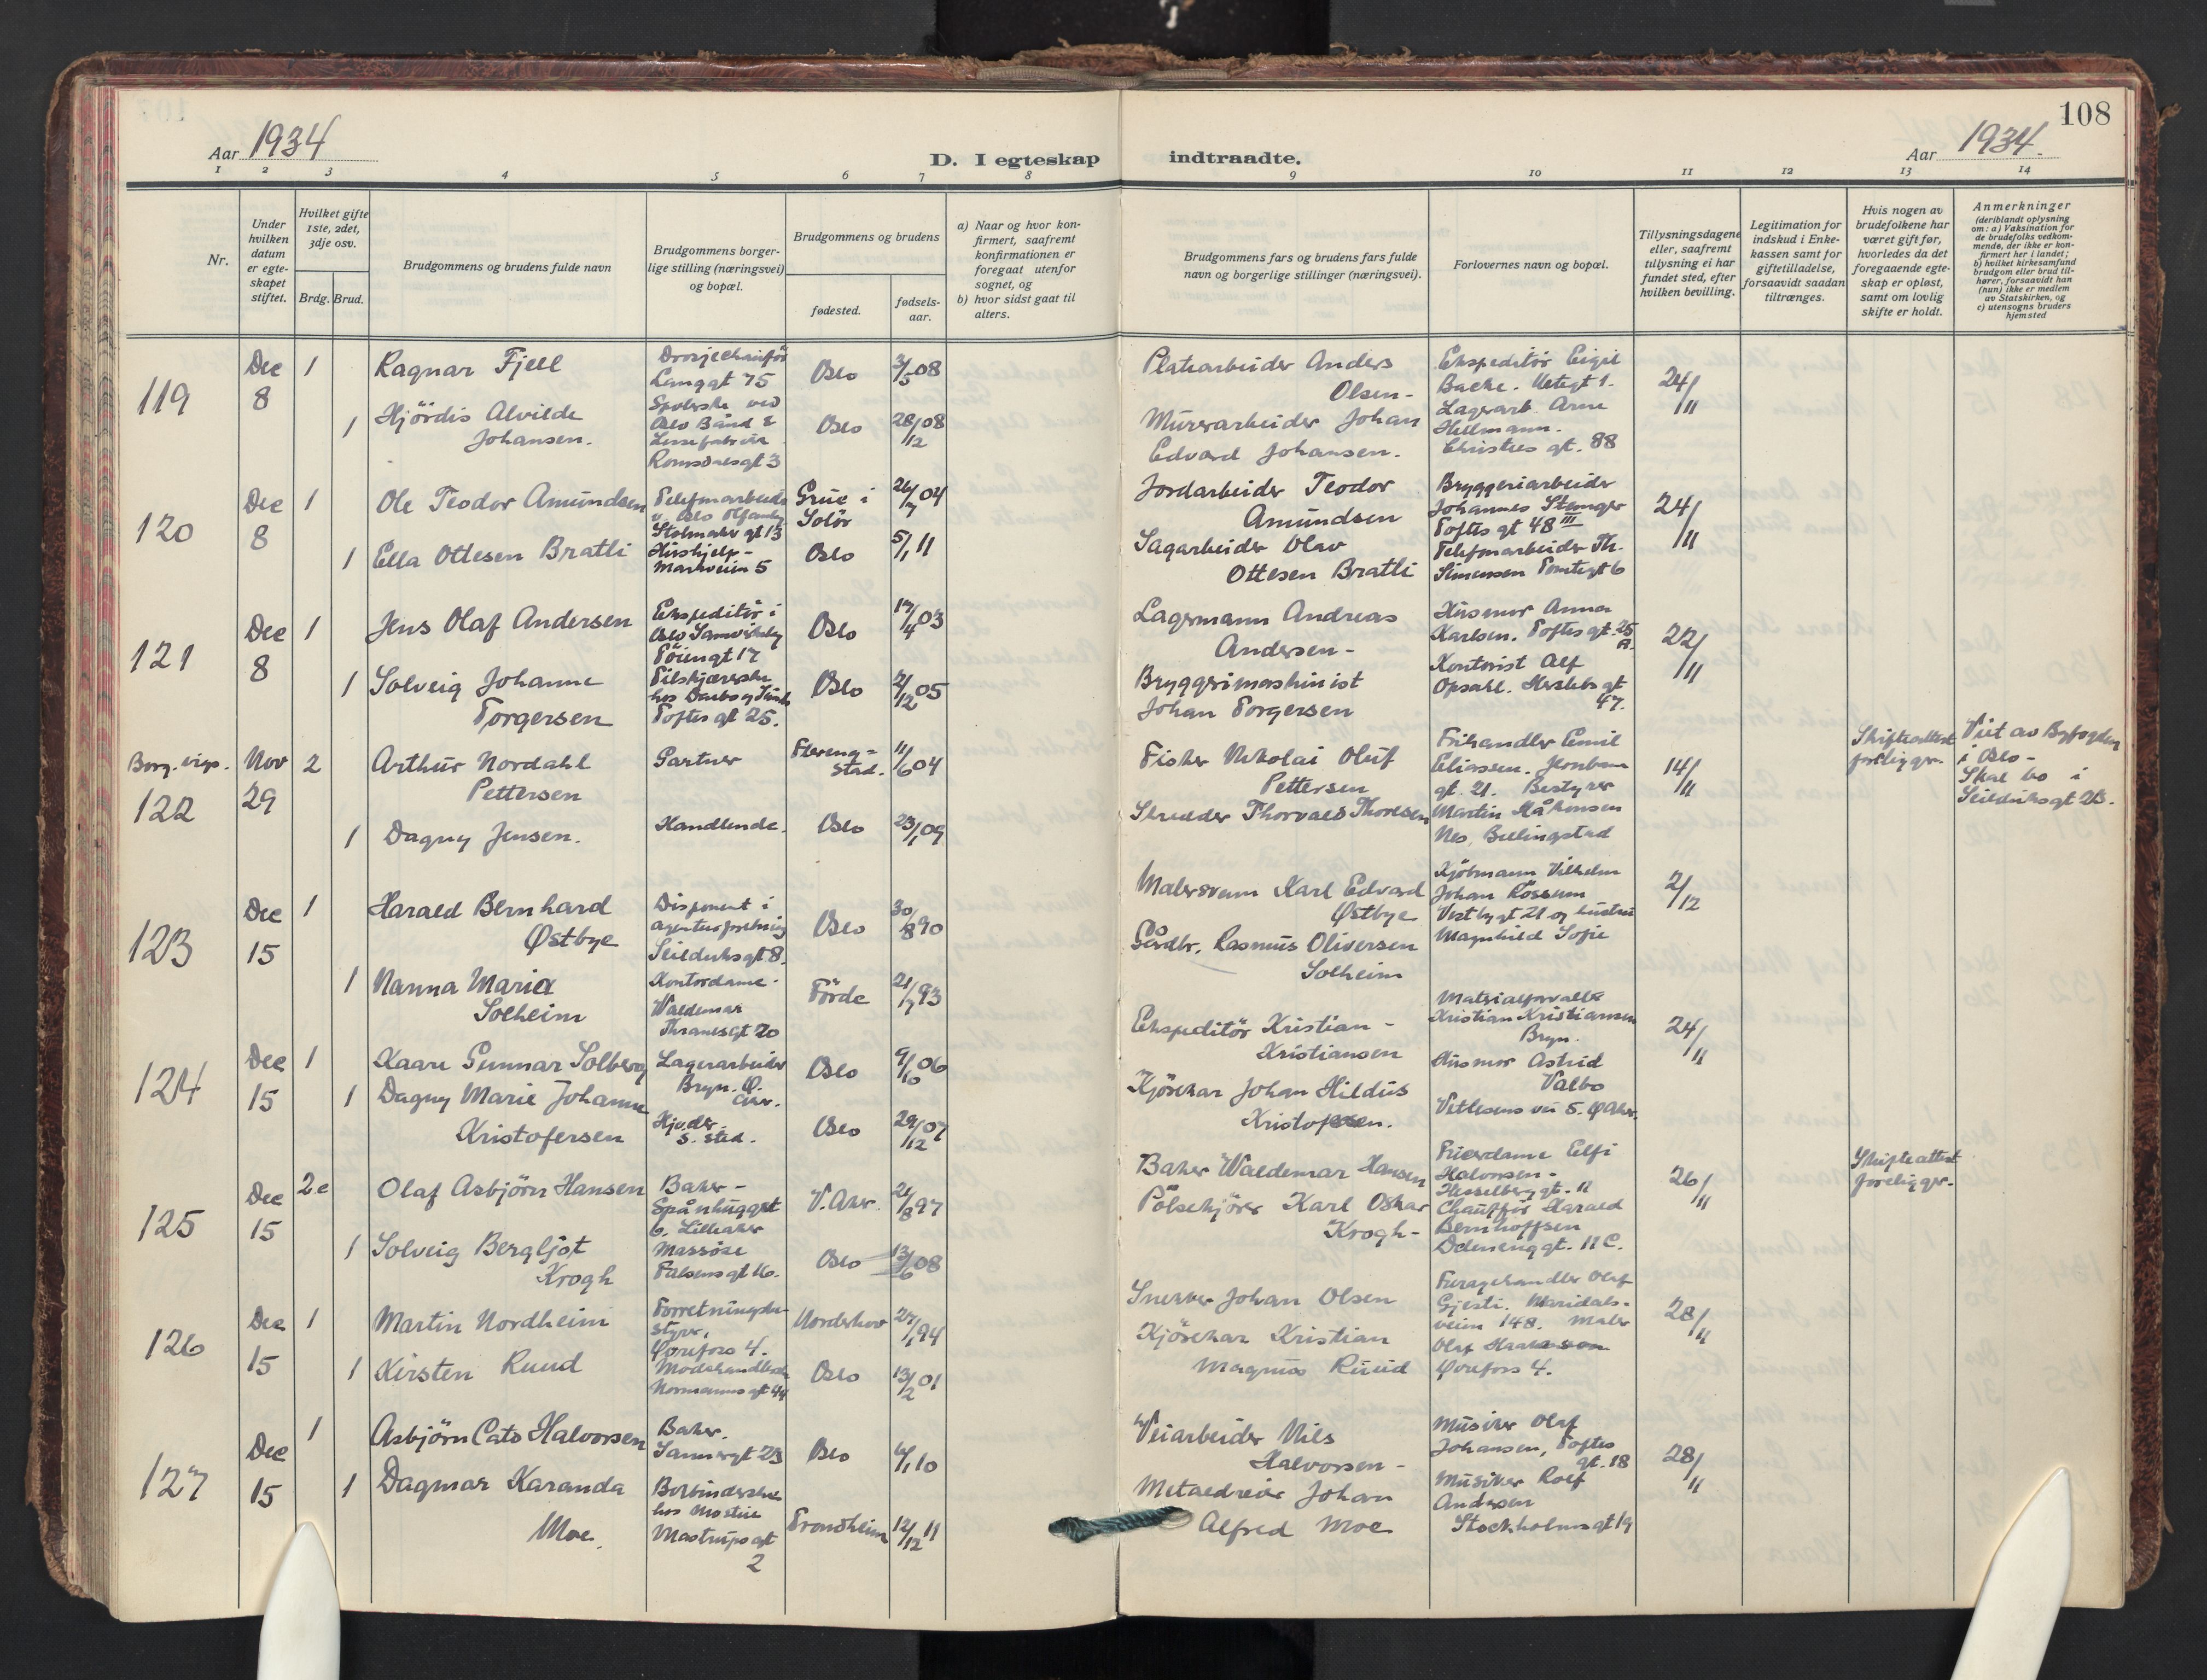 108
Aar 1934
D. I egteskap indtraadte.
Aar 1934.
1 2 3 4 5 6 7 8 9 10 11 12 13 14
Nr.
Under hvilken datum er egteskapet stiftet.
Hvilket gifte 1ste, 2det, 3dje osv.
Brdg. Brud.
Brudgommens og brudens fulde navn
Brudgommens borgerlige stilling (næringsvei) og bopæl.
Brudgommens og brudens
fødested.
fødselsaar.
a) Naar og hvor konfirmert, saafremt konfirmationen er foregaat utenfor sognet, og
b) hvor sidst gaat til alters.
Brudgommens fars og brudens fars fulde navn og borgerlige stillinger (næringsvei).
Forlovernes navn og bopæl.
Tillysningsdagene eller, saafremt tillysning ei har fundet sted, efter hvilken bevilling.
Legitimation for indskud i Enkekassen samt for giftetilladelse, forsaavidt saadan tiltrænges.
Hvis nogen av brudefolkene har været gift før, hvorledes da det foregaaende egteskap er opløst, samt om lovlig skifte er holdt.
Anmerkninger
(deriblandt oplysning om: a) Vaksination for de brudefolks vedkommende, der ikke er konfirmert her i landet;
b) hvilket kirkesamfund brudgom eller brud tilhører, forsaavidt han (hun) ikke er medlem av Statskirken, og
c) utensogns bruders hjemsted
119 Dec 8
1 Ragnar Fjell
Langgt 75
Oslo 3/5 08
1 Hjördis Alvilde
Johansen.
Spolerske ved
Oslo Bånd &
Romsdalsgt 3
Oslo 28/12 08
Platearbeider Anders
Olsen -
Murerarbeider Johan
Edvard Johansen.
Ekspeditör Eigil
Backe.
Lagerarb. Arne
Hellmann.
Christies gt. 88
24/11
120 Dec 8
1 Ole Teodor Amundsen
Telefonarbeider
Stolmaker gt 13
Grue i
Solör
26/7 04
1 Ella Ottesen Bratli
Hushjelp -
Markveien 5
Oslo 5/1 11
Jordarbeider Teodor
Amundsen
Sagarbeider Olav
Ottesen Bratli
Bryggeriarbeider
Johannes Stenger
Toftes gt 48 III
Telefonarbeider Th.
Simensen Tomtegt 6
24/11
121 Dec 8
1 Jens Olaf Andersen
Ekspeditör i
Töiengt 17
Oslo 17/4 03
1 Solveig Johanne
Torgersen
Toftes gt 25.
Oslo 2/12 05
Lagermann Andreas
Andersen -
Bryggerimaskinist
Johan Torgersen
Husmor Anna
Karlsen. Toftes gt. 25
A.
Kontorist Alf
Opsahl. Heslebs gt
47.
22/11
Borg. vigs.
122 Nov 29
2 Arthur Nordahl
Pettersen
Gartner
11/6 04
1 Dagny Jensen.
Handlende.
Oslo 23/1 09
Fisker Nikolai Oluf
Pettersen
Skredder Thorvald Thoresen
Frihandler Emil
Eliassen.
gt. 21. Bestyrer
Martin Håkonsen
Nes, Billingstad
14/11
Skifteattest
foreligger.
Viet av Byfogden
i Oslo -
Skal bo i
Seilduksgt 23.
123 Dec 15
1 Harald Bernhard
Østbye
Disponent i
agenturforretning
Seilduksgt 8.
Oslo 30/8 90
1 Nanna Maria
Solheim
Kontordame.
Waldemar
Thranesgt 20
Förde 21/7 93
Malersvenn Karl Edvard
Østbye
Gårdbr. Rasmus Oliversen
Solheim
Kjöbmann Vilhelm
Johan Rossum
Vestbygt 21 og hustru
Magnhild Sofie
2/12
124 Dec 15
1 Kaare Gunnar Solberg
Lagerarbeider
Bryn. Ø.
Aker.
Oslo 9/10 06
1 Dagny Marie Johanne
Kristofersen
Hj.v.der.
s. sted.
Oslo 29/12 07
Ekspeditör Kristian -
Kristiansen
Kjörekar Johan Hildus
Kristofersen.
Materialforvalter
Kristian Kristiansen
Bryn.
Husmor Astrid
Valbo
Vetlesens vei 5. Ø Aker.
24/11
125 Dec 15
2e Olaf Asbjörn Hansen
Baker -
Spånhugget
6. Lilleaker
V. Aker. 21/8 97
1 Solveig Bergljot
Krogh
Massöse
Falsens gt 16.
Oslo 13/6 08
Baker Waldemar Hansen
Pölsekjörer Karl Oskar
Krogh -
Friserdame Elfi
Halvorsen -
Hesselberg gt. 11
Chaufför Harald
Bernhoffsen
Dælenenggt. 11 C.
26/11
Skifteattest
foreligger.
126 Dec 15
1 Martin Nordheim
Forretningsbestyrer,
Ørefoss 4.
Norderhov 27/1 94
1 Kirsten Ruud
Modehandlerske
Normanns gt 44
Oslo 13/2 01
Snekker Johan Olsen
Kjörekar Kristian
Magnus Ruud
Furagehandler Olaf
Gjesti. Maridalsveien 148. Maler
Olaf
Ørefoss 4.
28/11
127 Dec 15
1 Asbjörn Cato Halvorsen
Baker.
Sannergt 23
Oslo 4/1 10
1 Dagmar Karanda
Moe.
Bokbinderske
Mastrups gt
2
Trondheim 12/12 11
Veiarbeider Nils
Halvorsen -
Metaldreier Johan
Alfred Moe
Musiker Olaf
Johansen, Toftes
gt. 18
Musiker Rolf
Andersen
Stockholmsgt 19
28/11